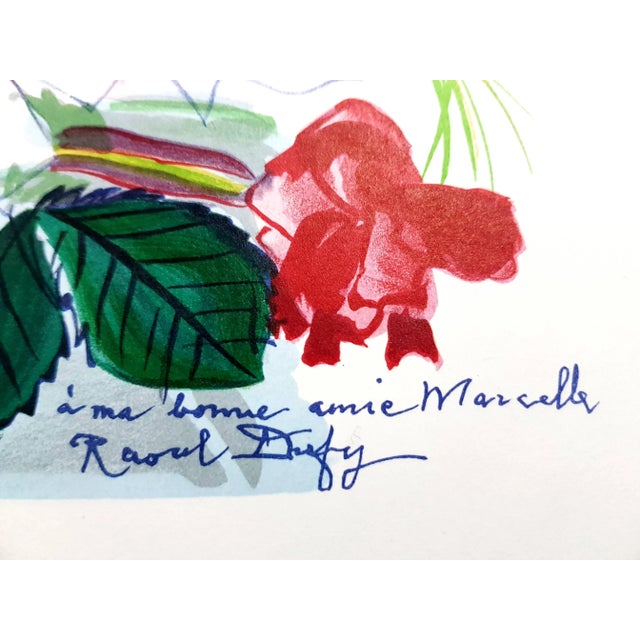 à ma bonne amie Marcelle
Raoul Dufy